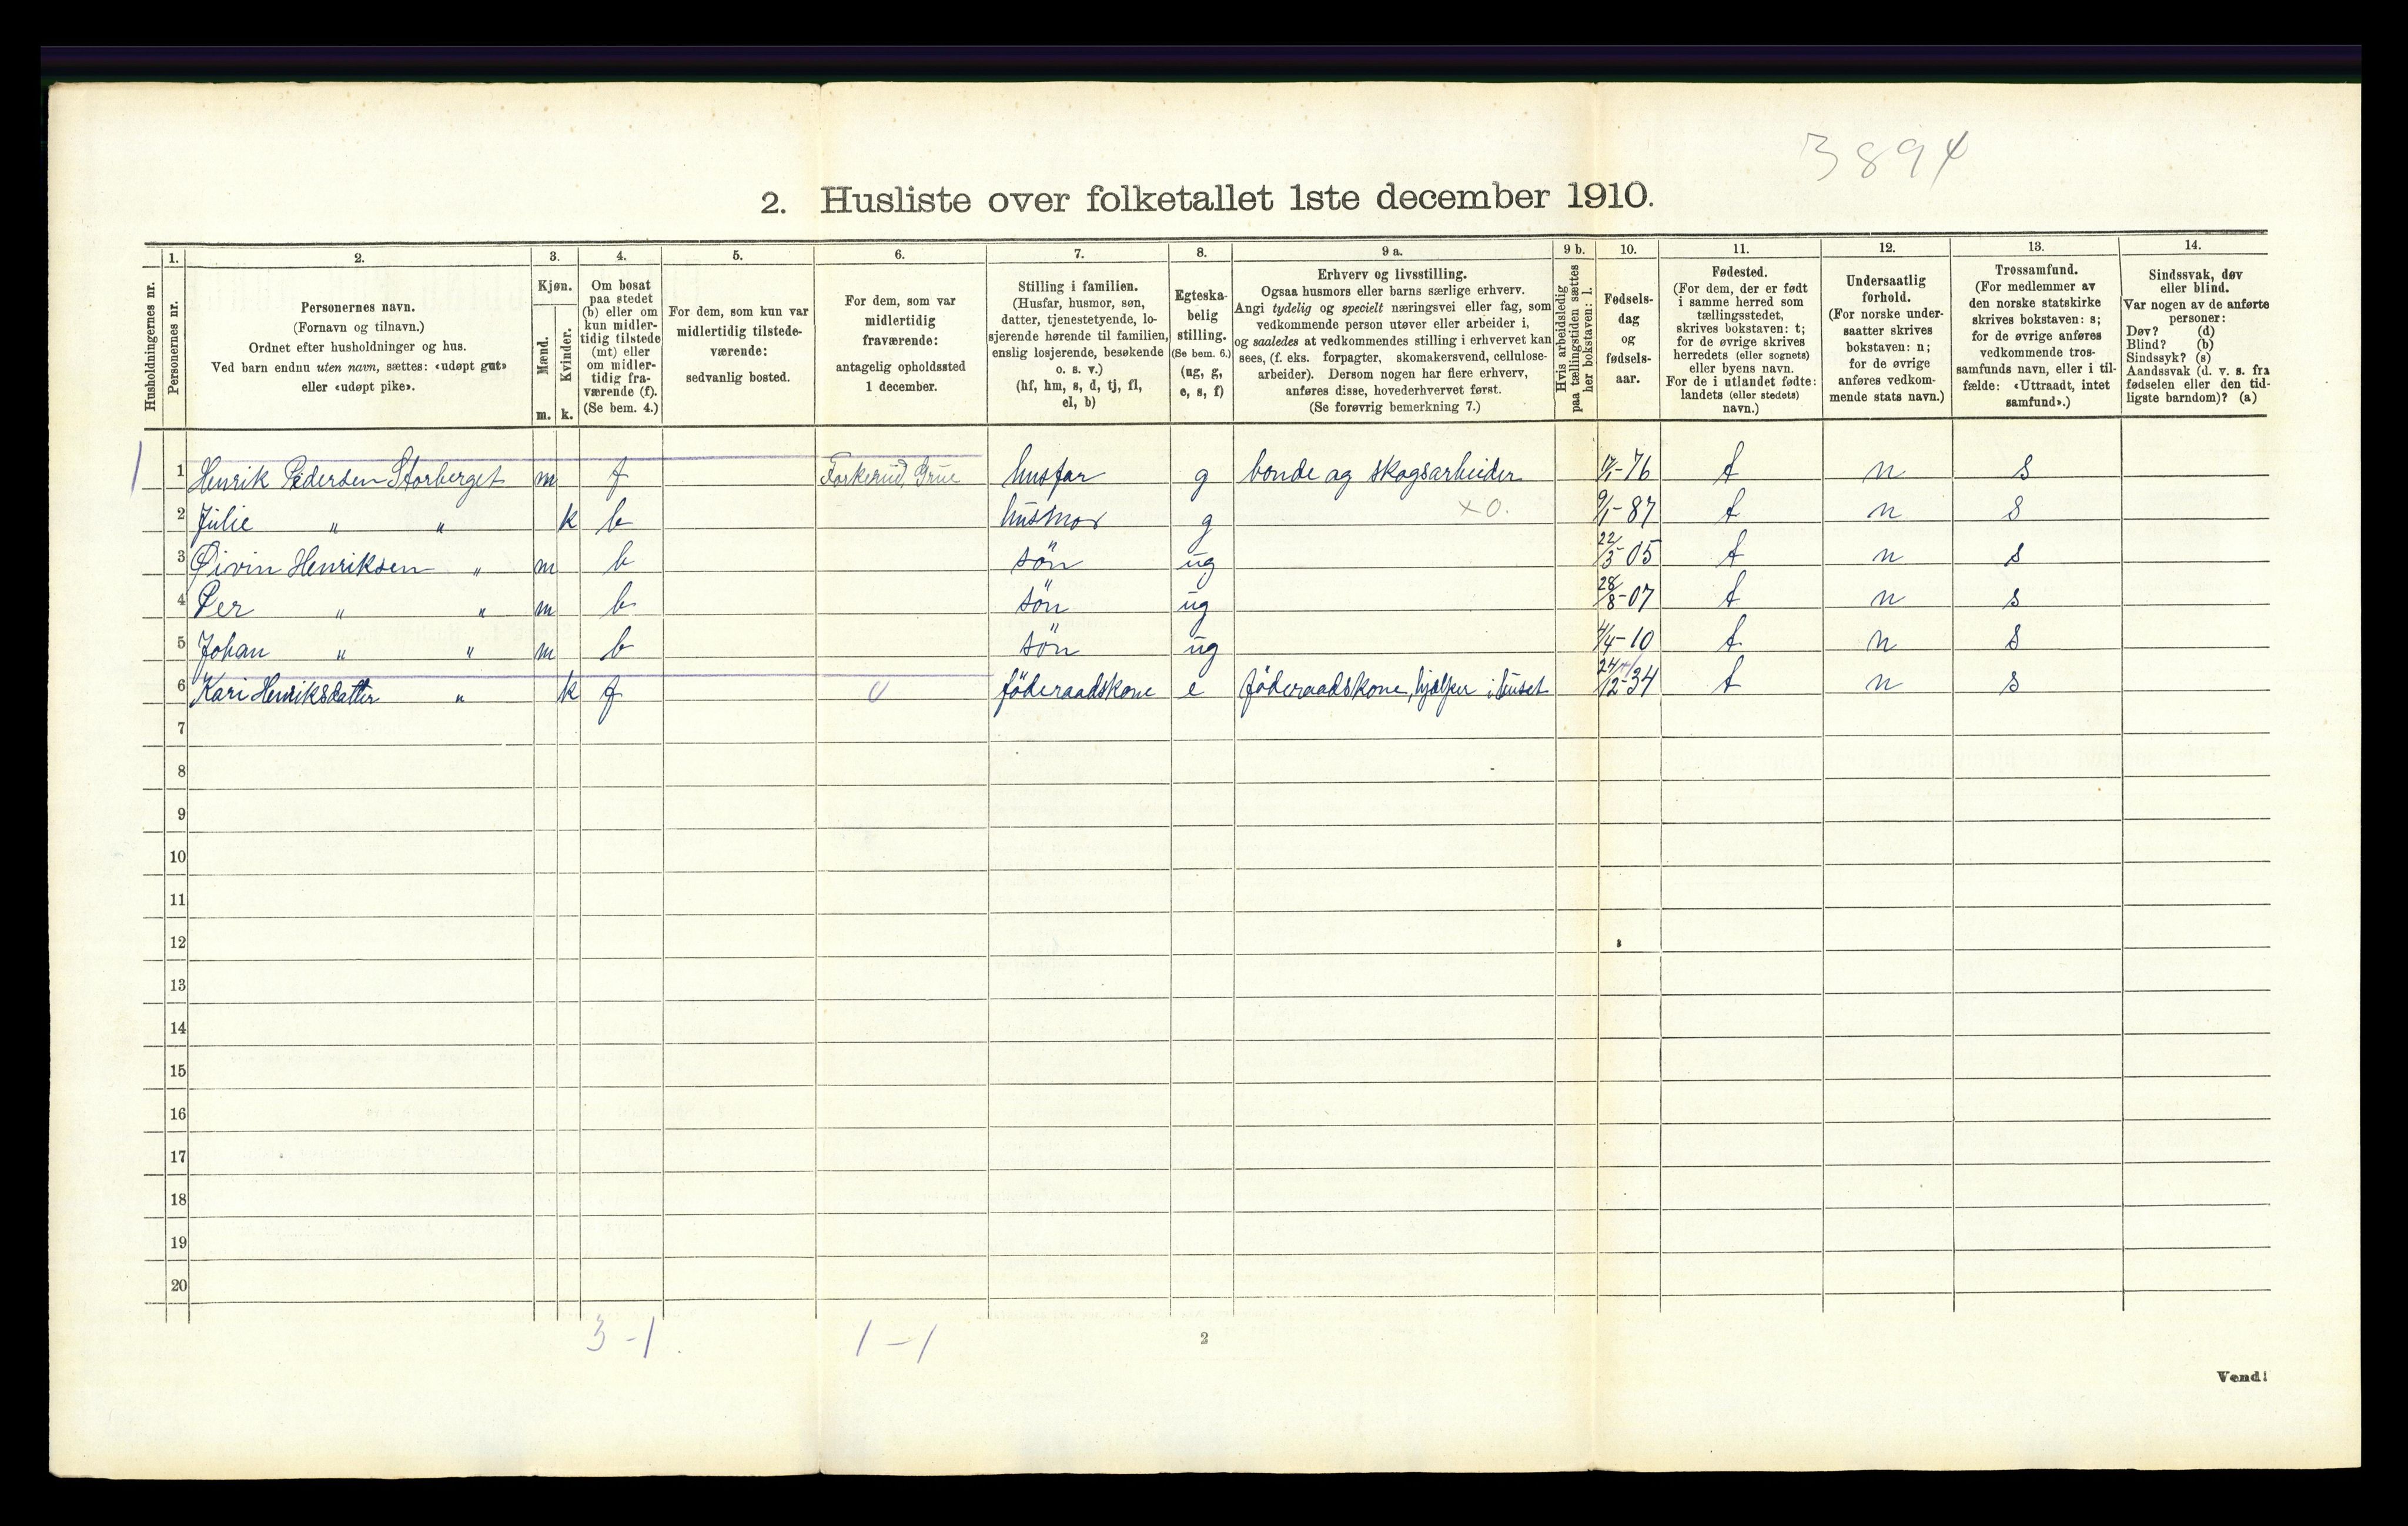 3894
2. Husliste over folketallet 1ste december 1910.
Husholdningernes nr.
1.
Personernes nr.
2.
Personernes navn.
(Fornavn og tilnavn.)
Ordnet efter husholdninger og hus.
Ved barn endnu uten navn, sættes: «udøpt gut»
eller «udøpt pike».
3.
Kjøn.
Mænd.
Kvinder.
m. k.
4.
Om bosat
paa stedet
(b) eller om
kun midler-
tidig tilstede
(mt) eller
om midler-
tidig fra-
værende (f).
(Se bem. 4.)
5.
For dem, som kun var
midlertidig tilstede-
værende:
sedvanlig bosted.
6.
For dem, som var
midlertidig
fraværende:
antagelig opholdssted
1 december.
7.
Stilling i familien.
(Husfar, husmor, søn,
datter, tjenestetyende, lo-
sjerende hørende til familien,
enslig losjerende, besøkende
o. s. v.)
(hf, hm, s, d, tj, fl,
el, b)
8.
Egteska-
belig
stilling.
(Se bem. 6.)
(ug, g,
e, s, f)
9 a.
Erhverv og livsstilling.
Ogsaa husmors eller barns særlige erhverv.
Angi tydelig og specielt næringsvei eller fag, som
vedkommende person utøver eller arbeider i,
og saaledes at vedkommendes stilling i erhvervet kan
sees, (f. eks. forpagter, skomakersvend, cellulose-
arbeider). Dersom nogen har flere erhverv,
anføres disse, hovederhvervet først.
(Se forøvrig bemerkning 7.)
9 b.
Hvis arbeidsledig
paa tællingstiden sættes
her bokstaven: l.
10.
Fødsels-
dag
og
fødsels-
aar.
11.
Fødested.
(For dem, der er født
i samme herred som
tællingsstedet,
skrives bokstaven: t;
for de øvrige skrives
herredets (eller sognets)
eller byens navn.
For de i utlandet fødte:
landets (eller stedets)
navn.)
12.
Undersaatlig
forhold.
(For norske under-
saatter skrives
bokstaven: n;
for de øvrige
anføres vedkom-
mende stats navn.)
13.
Trossamfund.
(For medlemmer av
den norske statskirke
skrives bokstaven: s;
for de øvrige anføres
vedkommende tros-
samfunds navn, eller i til-
fælde: «Uttraadt, intet
samfund».)
14.
Sindssvak, døv
eller blind.
Var nogen av de anførte
personer:
Døv? (d)
Blind? (b)
Sindssyk? (s)
Aandssvak (d. v. s. fra
fødselen eller den tid-
ligste barndom)? (a)
1 1 Henrik Pedersen Storberget m f Forkerud, Grue husfar g bonde og skogsarbeider -76 t n s
2 Julie " " k b husmor g x0. 9/1-87 t n s
3 Øivin Henriksen " m b søn ug 22/5 05 t n s
4 Per " " m b søn ug 28/8-07 t n s
5 Johan " " m b søn ug 4/4-10 t n s
6 Kari Henriksdatter " k f 0 föderaadskone e föderaadskone, hjælper i huset 24/12-34 t n s
7
8
9
10
11
12
13
14
15
16
17
18
19
20
3-1 1-1
2
Vend!